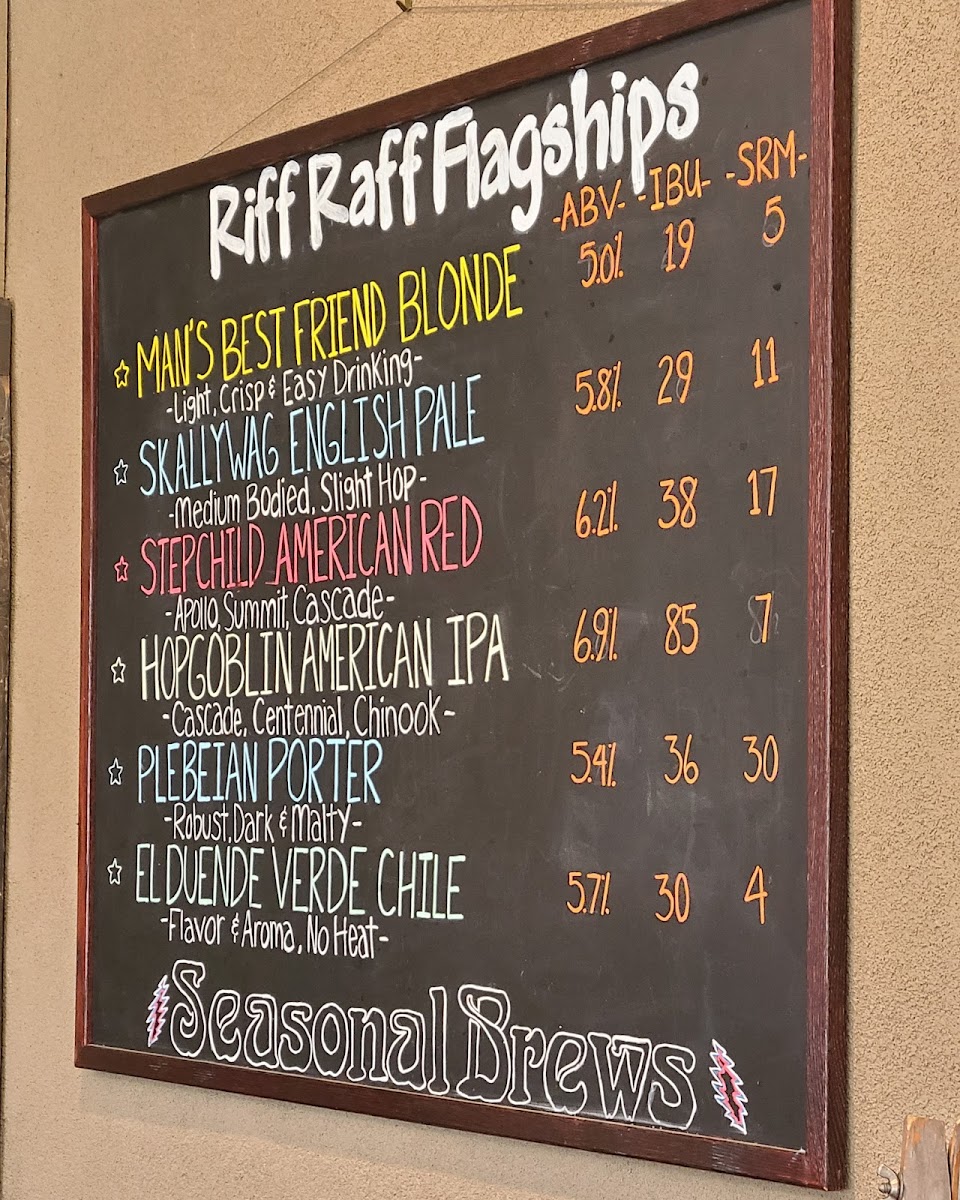 Riff Raff Flagships
-ABV- -IBU- -SRM-
MAN'S BEST FRIEND BLONDE 5.0% 19 5
-Light, Crisp & Easy Drinking-
SKALLYWAG ENGLISH PALE 5.8% 29 11
-Medium Bodied, Slight Hop-
STEPCHILD AMERICAN RED 6.2% 38 17
-Apollo, Summit, Cascade-
HOPGOBLIN AMERICAN IPA 6.9% 85 7
-Cascade, Centennial, Chinook-
PLEBEIAN PORTER 5.4% 36 30
-Robust, Dark & Malty-
EL DUENDE VERDE CHILE 5.7% 30 4
-Flavor & Aroma, No Heat-
Seasonal Brews